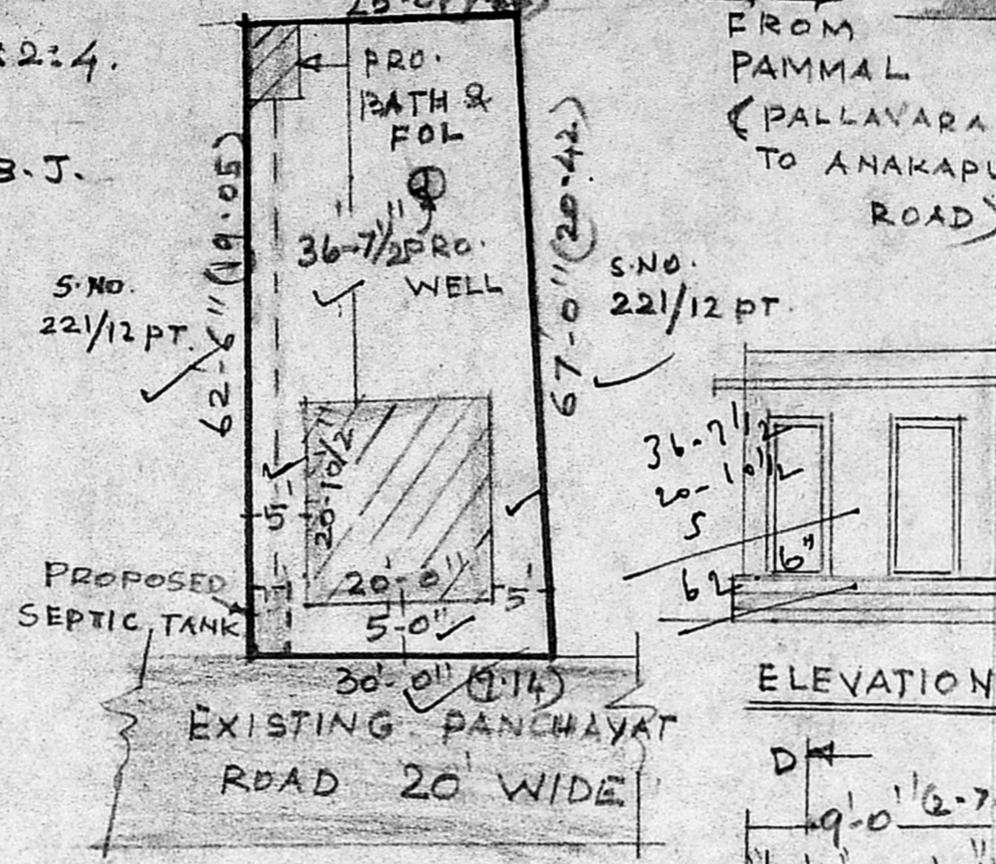 :2:4.
B.J.
PRO.
BATH &
FOL
36-7 1/2"
PRO.
WELL
62-6" (19.05)
67-0" (20.42)
S.NO.
221/12 PT.
S.NO.
221/12 PT.
FROM
PAMMAL
(PALLAVARA
TO ANAKAPU
ROAD)
20-10 1/2"
5'
20'-0"
5'
5-0"
PROPOSED
SEPTIC TANK
30'-0" (9.14)
EXISTING PANCHAYAT
ROAD 20' WIDE
36-7 1/2
20-10 1/2
5
62 6"
ELEVATION
D
9'-0" (2.7